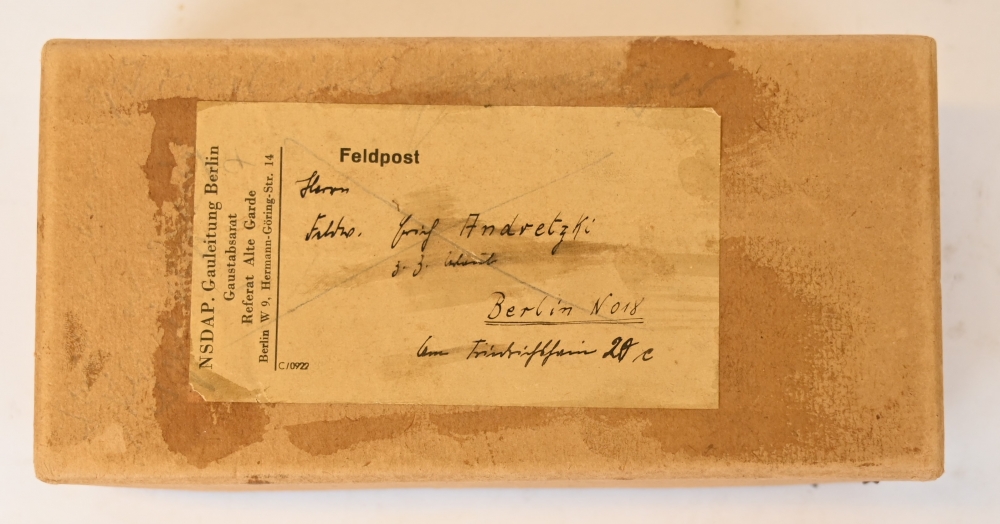 NSDAP. Gauleitung Berlin
Gaustabsarat
Referat Alte Garde
Berlin W 9, Hermann-Göring-Str. 14
C/0922
Feldpost
Herrn
Feldw. Erich Andretzki
z. Z. Urlaub
Berlin NO18
Am Friedrichshain 20 c